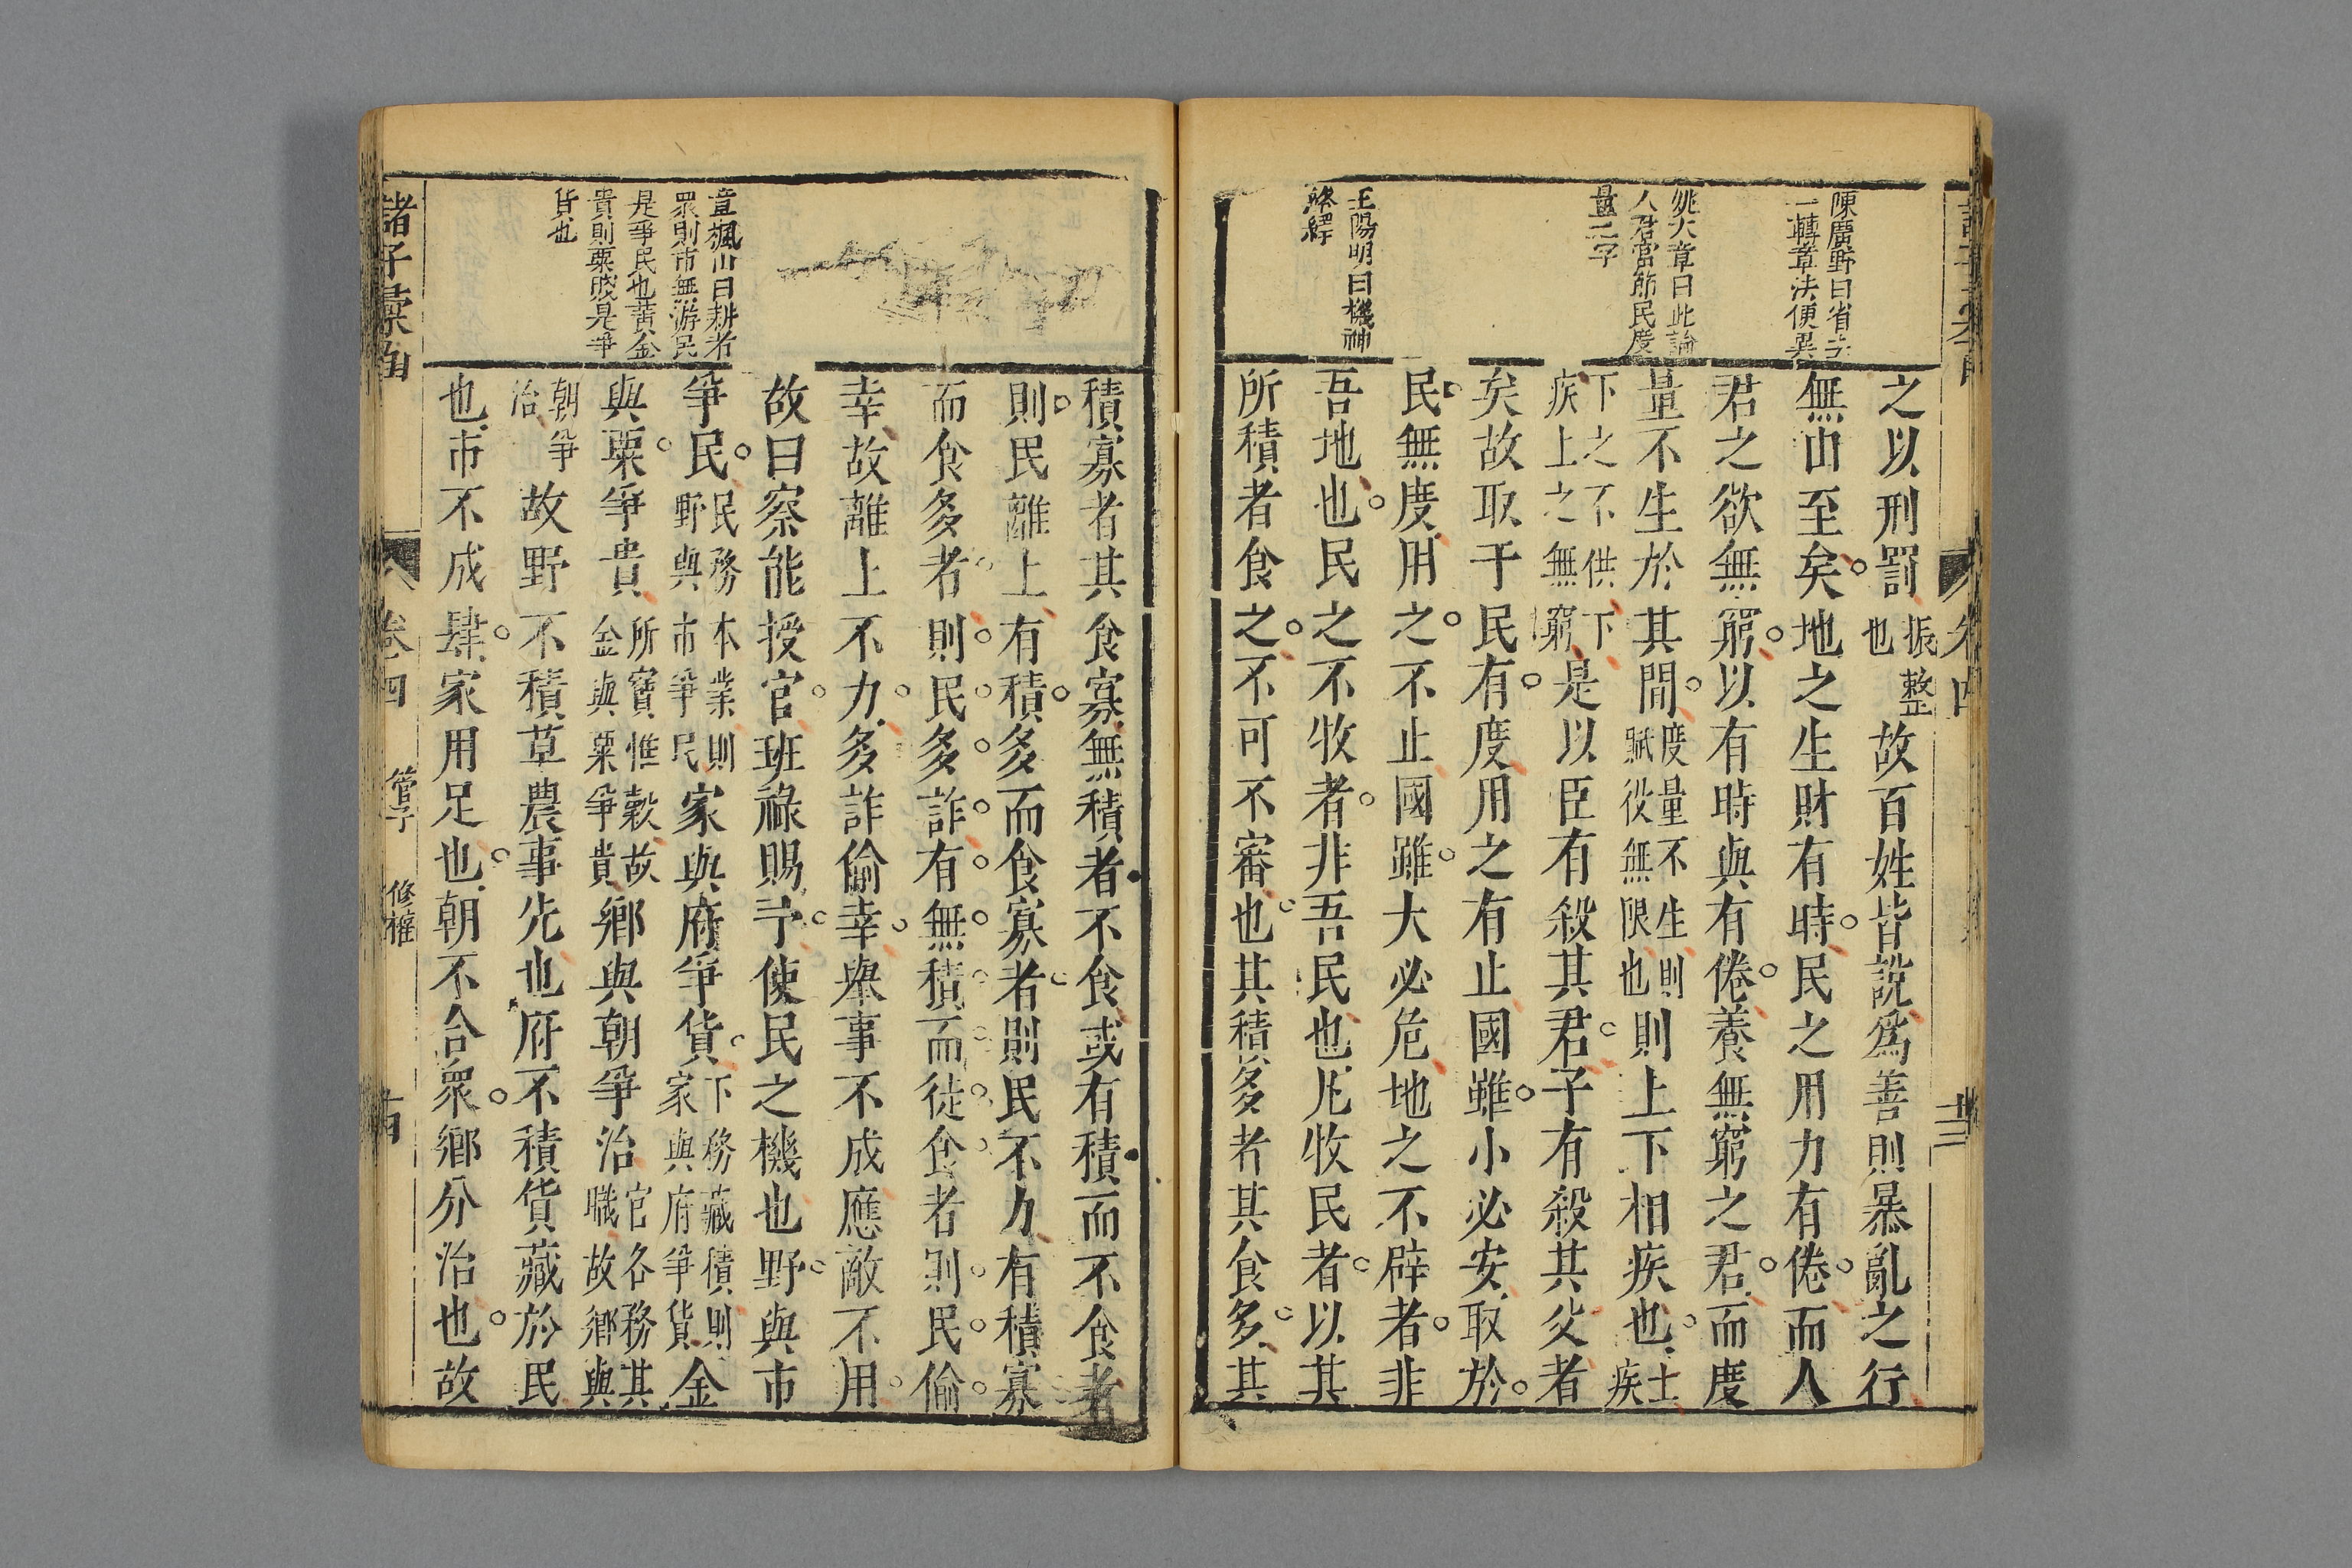 陳廣野曰省
一轉章法便異
姚大章曰此論
人君當節民度
量二字
王陽明曰機神
絡繹
之以刑罰振整也故百姓皆說為善則暴亂之行
無由至矣地之生財有時民之用力有倦而人
君之欲無窮以有時與有倦養無窮之君而度
量不生於其間度量不生則賦役無限也則上下相疾也士疾
下之不供下疾上之無窮是以臣有殺其君子有殺其父者
矣故取于民有度用之有止國雖小必安取於
民無度用之不止國雖大必危地之不辟者非
吾地也民之不牧者非吾民也凡牧民者以其
所積者食之不可不審也其積多者其食多其
卷四
諸子彙函
卷四
管子
修權
章楓山曰耕者
眾則市無游民
是爭民也黃金
貴則粟賤是爭
貨也
積寡者其食寡無積者不食或有積而不食者
則民離上有積多而食寡者則民不力有積寡
而食多者則民多詐有無積而徒食者則民偷
幸故離上不力多詐偷幸舉事不成應敵不用
故曰察能授官班祿賜予使民之機也野與市
爭民民務本業則野與市爭民家與府爭貨下務藏積則家與府爭貨金
與粟爭貴所寶惟穀故金與粟爭貴鄉與朝爭治官各務其職故鄉與
朝爭治故野不積草農事先也府不積貨藏於民
也市不成肆家用足也朝不合眾鄉分治也故